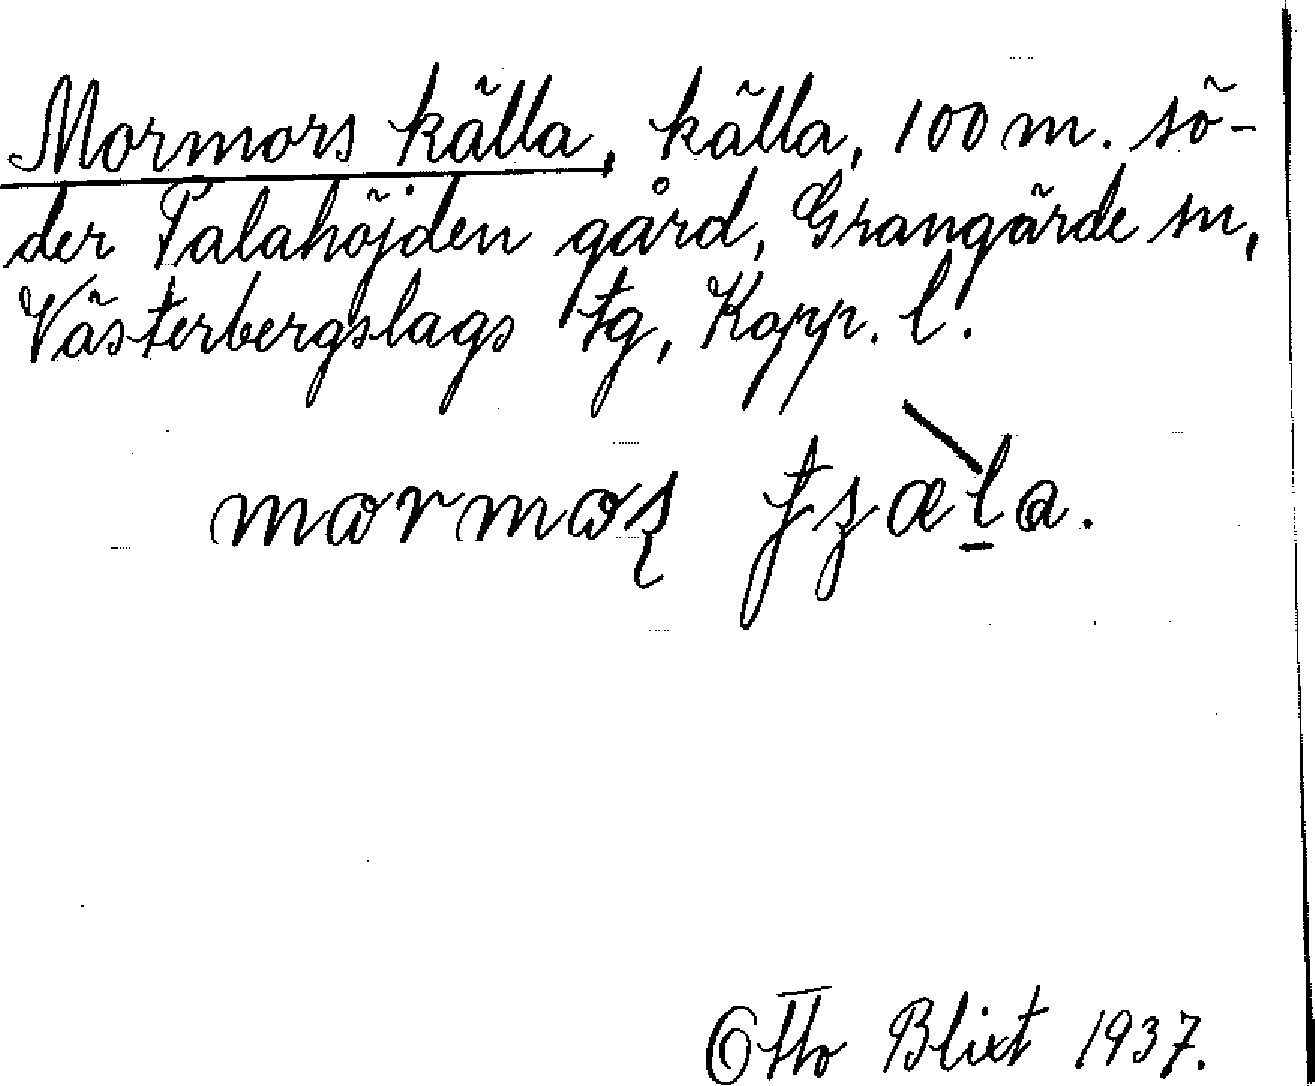 Mormors källa, källa, 100 m. sö-
der Palahöjden gård, Grangärde sn,
Västerbergslags tg, Kopp. l.
mormos
Otto Blixt 1937.